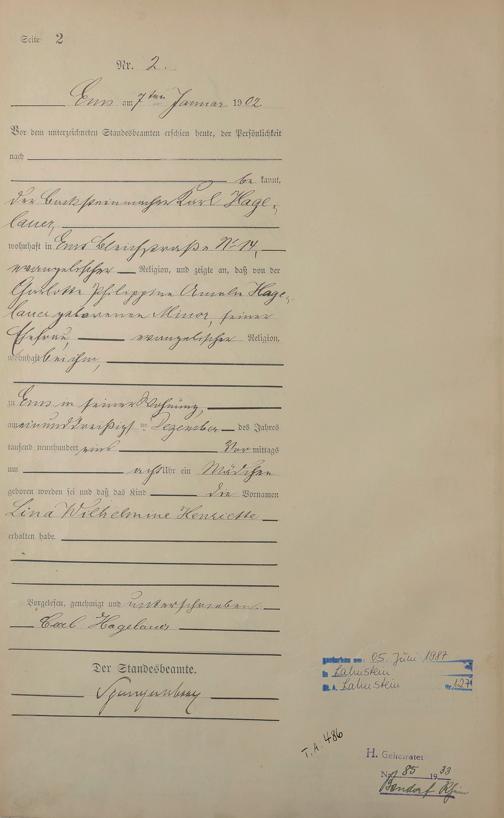 Seite 2
Nr. 2.
Ems am 7ten Januar 1902
Vor dem unterzeichneten Standesbeamten erschien heute, der Persönlichkeit
nach
be kannt,
der Backsteinmacher Karl Hage-
lauer,
wohnhaft in Ems Bleichstraße No 14,
evangelischer Religion, und zeigte an, daß von der
Charlotte Philippine Amalie Hage-
lauer geborenen Minor, seiner
Ehefrau, evangelischer Religion,
wohnhaft bei ihm,
zu Ems in seiner Wohnung,
am einunddreißigsten Dezember des Jahres
tausend neunhundert eins Vor mittags
um acht Uhr ein Mädchen
geboren worden sei und daß das Kind die Vornamen
Lina Wilhelmine Henriette
erhalten habe.
Vorgelesen, genehmigt und unterschrieben.
Carl Hagelauer
Der Standesbeamte.
Spangenberg
gestorben am 05. Juni 1987
in Lahnstein
St. A. Lahnstein Nr. 127
T. A. 486
H. Geheiratet
Nr. 85 1933
Bendorf Rhein